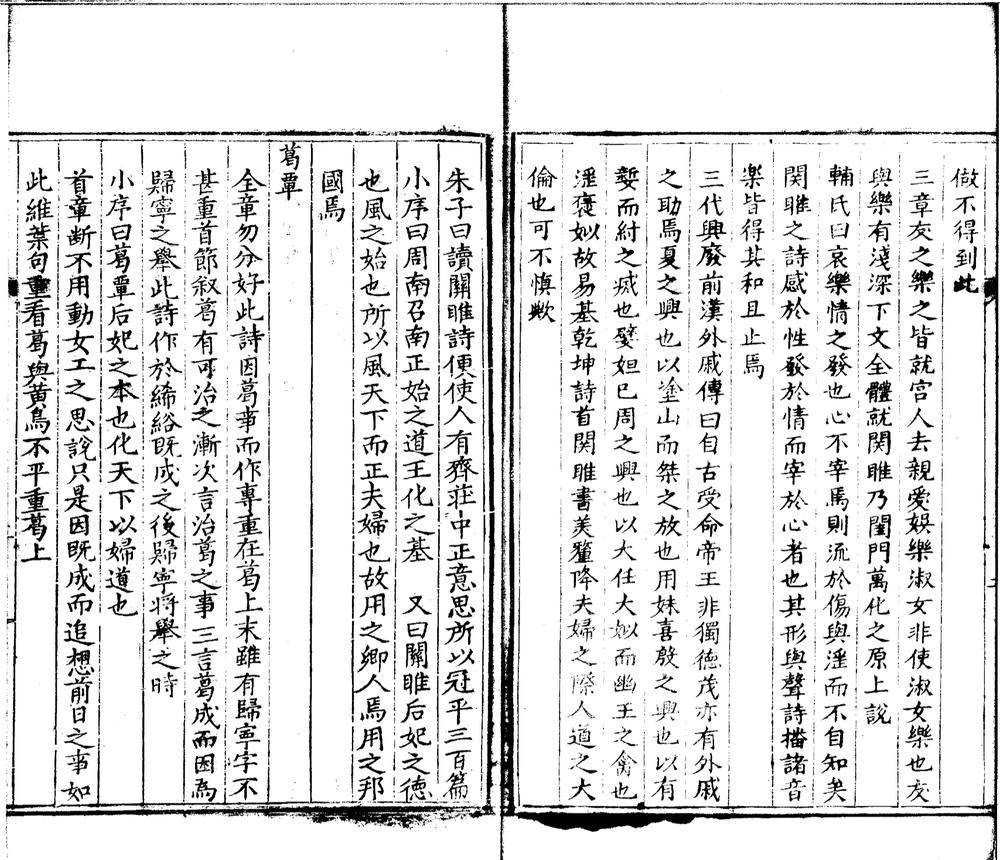 做不得到此
三章友之樂之皆就宮人去親愛娛樂淑女非使淑女樂也友
與樂有淺深下文全體就関雎乃閨門萬化之原上説
輔氏曰哀樂情之發也心不宰焉則流於傷與淫而不自知矣
関雎之詩感於性發於情而宰於心者也其形與聲詩播諸音
樂皆得其和且止焉
三代興廢前漢外戚傳曰自古受命帝王非獨德茂亦有外戚
之助焉夏之興也以塗山而桀之放也用妹喜殷之興也以有
娎而紂之烕也嬖妲已周之興也以大任大姒而幽王之禽也
淫褒姒故易基乾坤詩首関雎書美釐降夫婦之際人道之大
倫也可不慎歟
朱子曰讀關雎詩便使人有齊莊中正意思所以冠乎三百篇
小序曰周南召南正始之道王化之基 又曰關雎后妃之德
也風之始也所以風天下而正夫婦也故用之鄉人焉用之邦
國焉
葛覃
全章勿分好此詩因葛事而作專重在葛上末雖有歸寧字不
甚重首節叙葛有可治之漸次言治葛之事三言葛成而因為
歸寧之舉此詩作於絺綌既成之後歸寧將舉之時
小序曰葛覃后妃之本也化天下以婦道也
首章断不用動女工之思說只是因既成而追想前日之事如
此維葉句重看葛與黃鳥不平重葛上